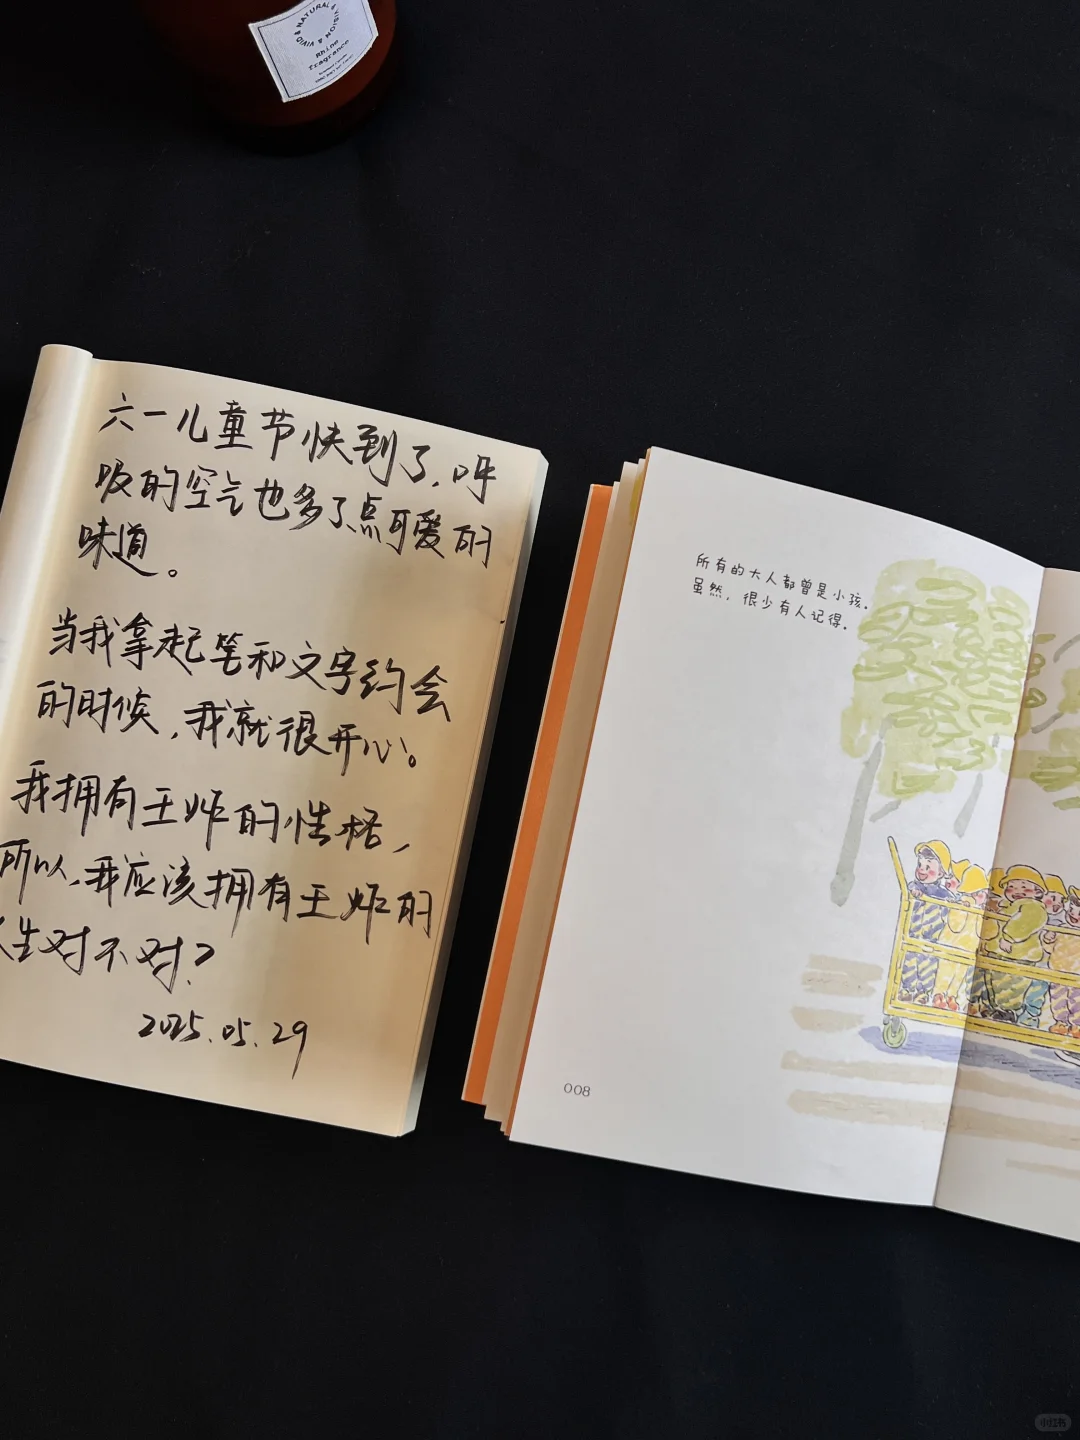 NATURAL & VISION & VIVID &
Rhine
fragrance
六一儿童节快到了，呼
吸的空气也多了点可爱的
味道。
当我拿起笔和文字约会
的时候，我就很开心。
我拥有王炸的性格，
所以，我应该拥有王炸的
人生对不对？
2025.05.29
所有的大人都曾是小孩。
虽然，很少有人记得。
008
小红书